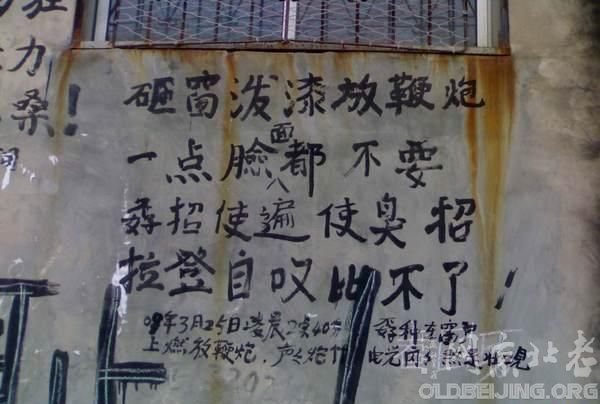 力
桑!
砸窗泼漆放鞭炮
一点臉面都不要
孬招使遍使臭招
拉登自叹比不了!
年3月25日凌晨2点40分 孬种在窗
上燃放鞭炮,
OLDBEIJING.ORG